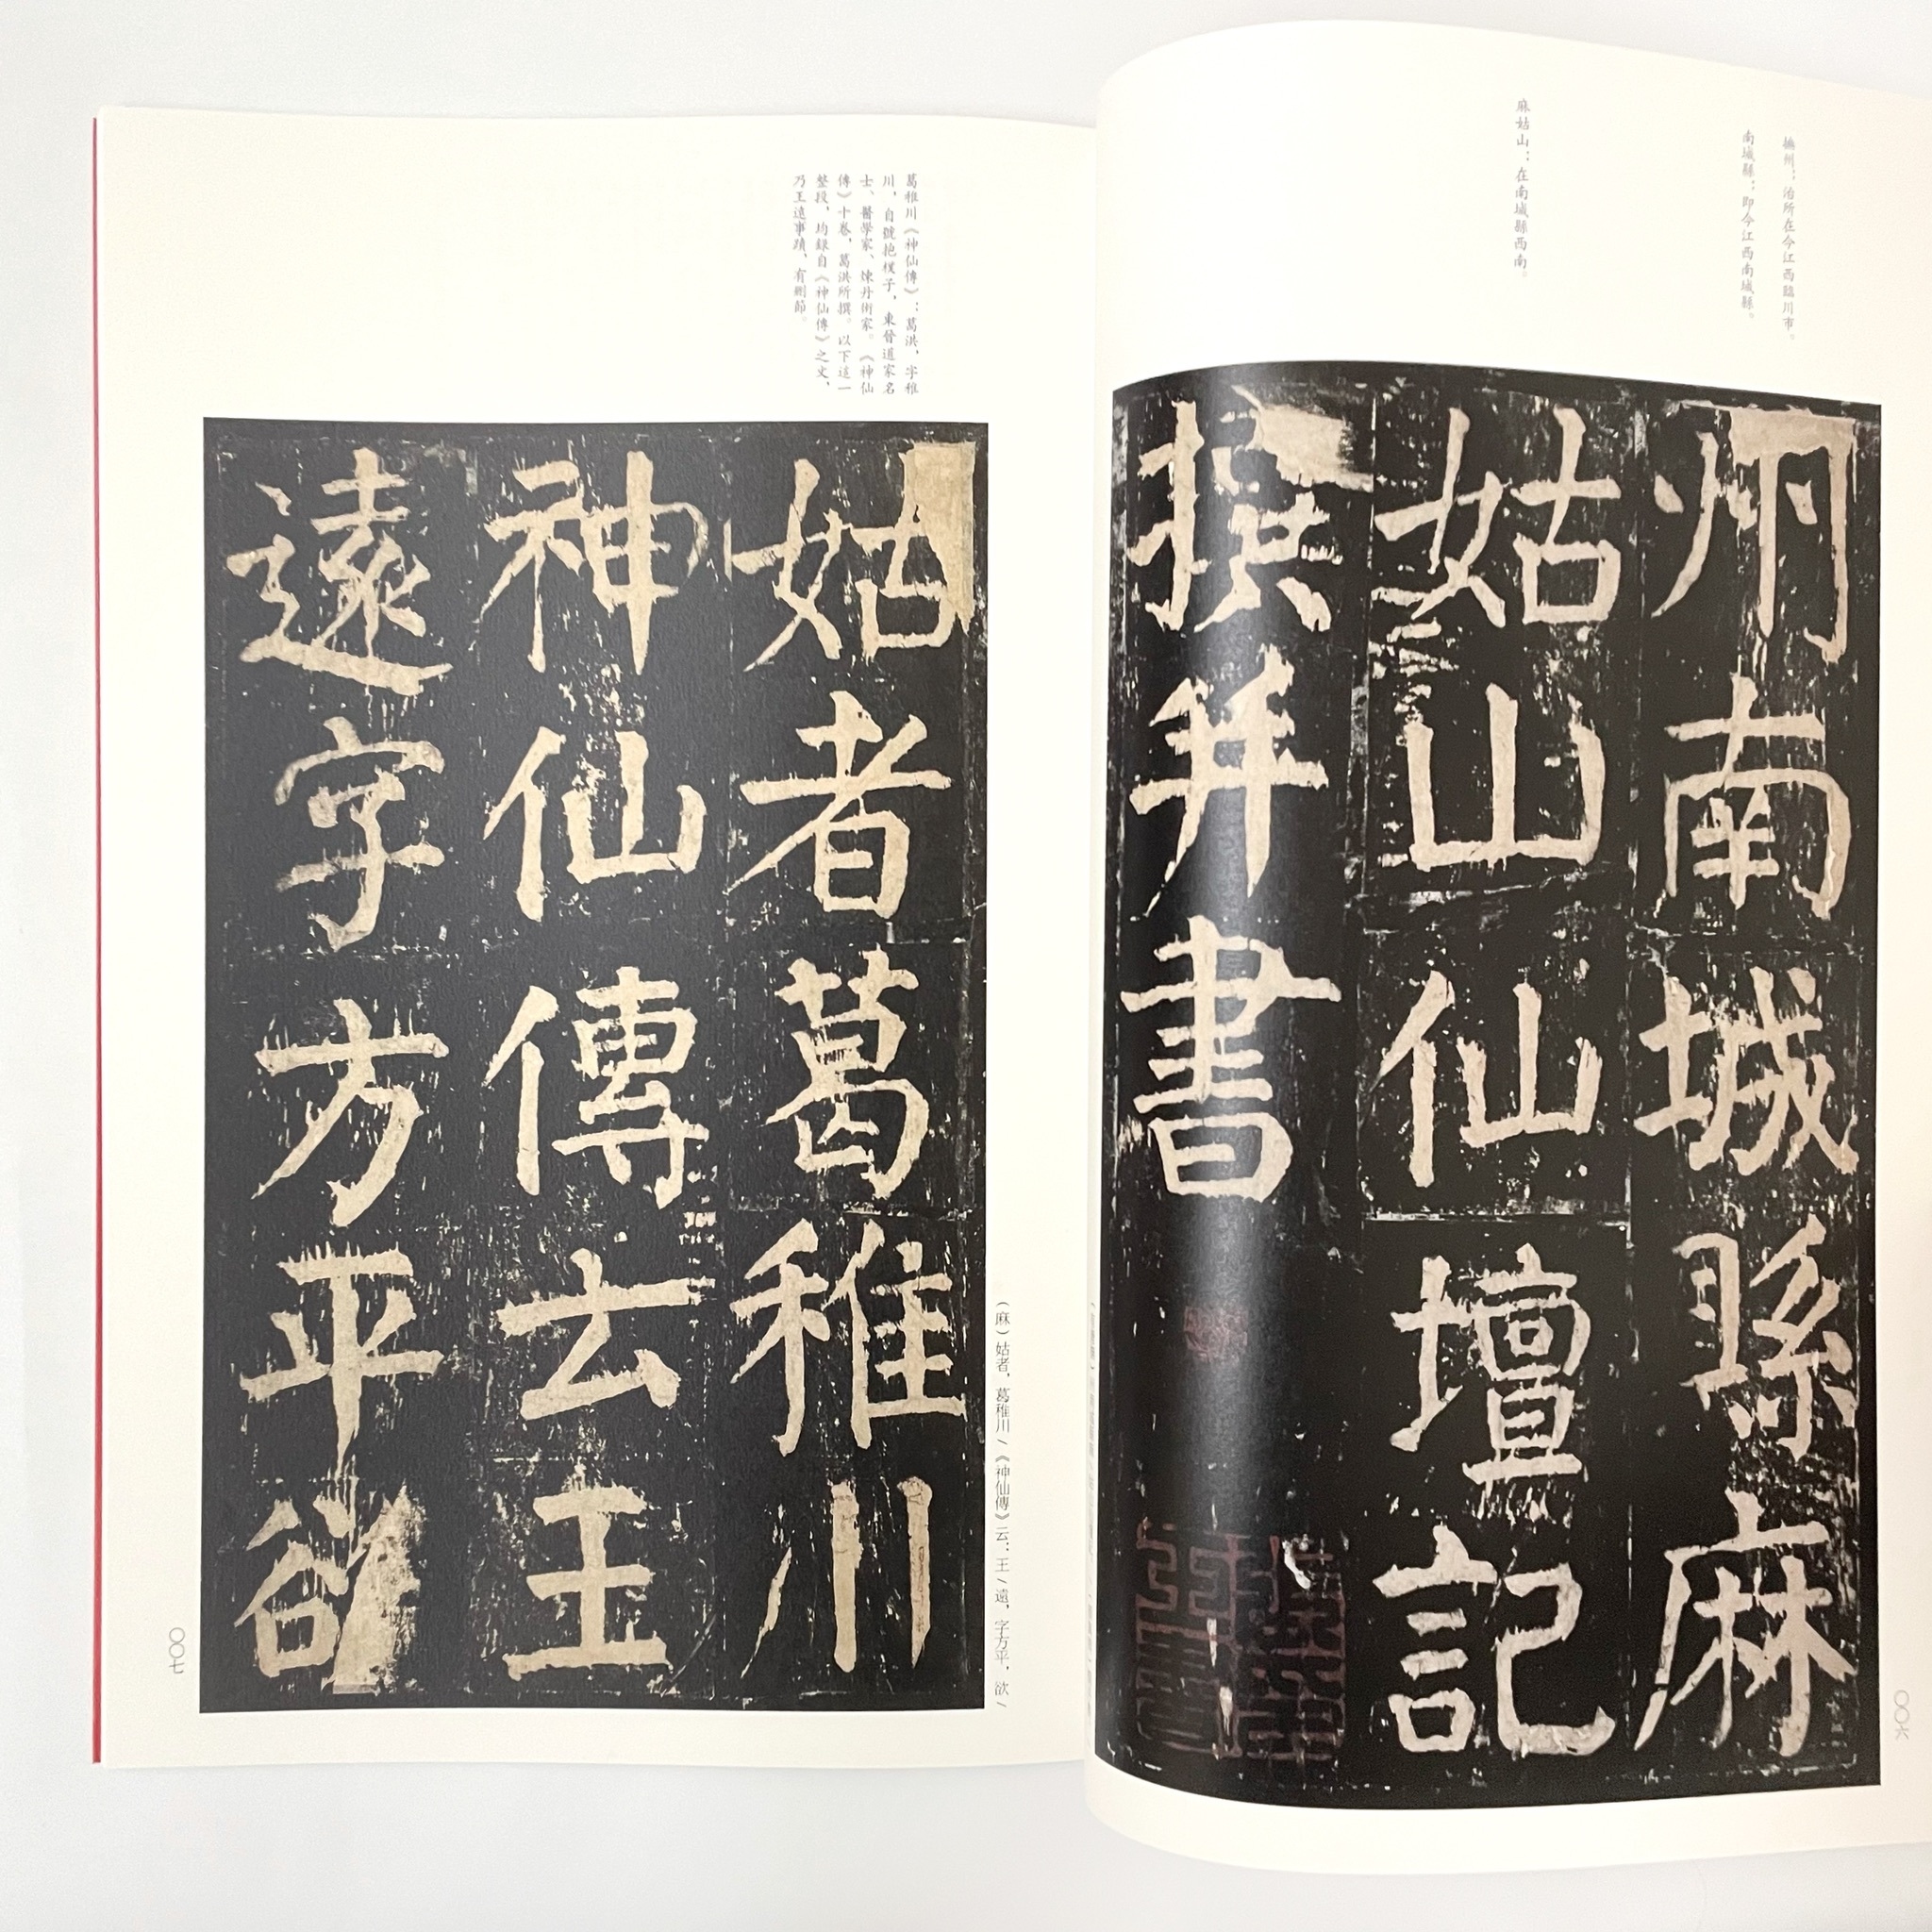 撫州：治所在今江西臨川市。
南城縣：即今江西南城縣。
麻姑山：在南城縣西南。
州南城縣麻
姑山仙壇記
撰并書
〇〇六
葛稚川《神仙傳》：葛洪，字稚
川，自號抱樸子，東晉道家名
士、醫學家、煉丹術家。《神仙
傳》十卷，葛洪所撰。以下這一
整段，均録自《神仙傳》之文，
乃王遠事蹟，有刪節。
（麻）姑者，葛稚川/《神仙傳》云：王/遠，字方平，欲/
姑者葛稚川
神仙傳云王
遠字方平欲
〇〇七